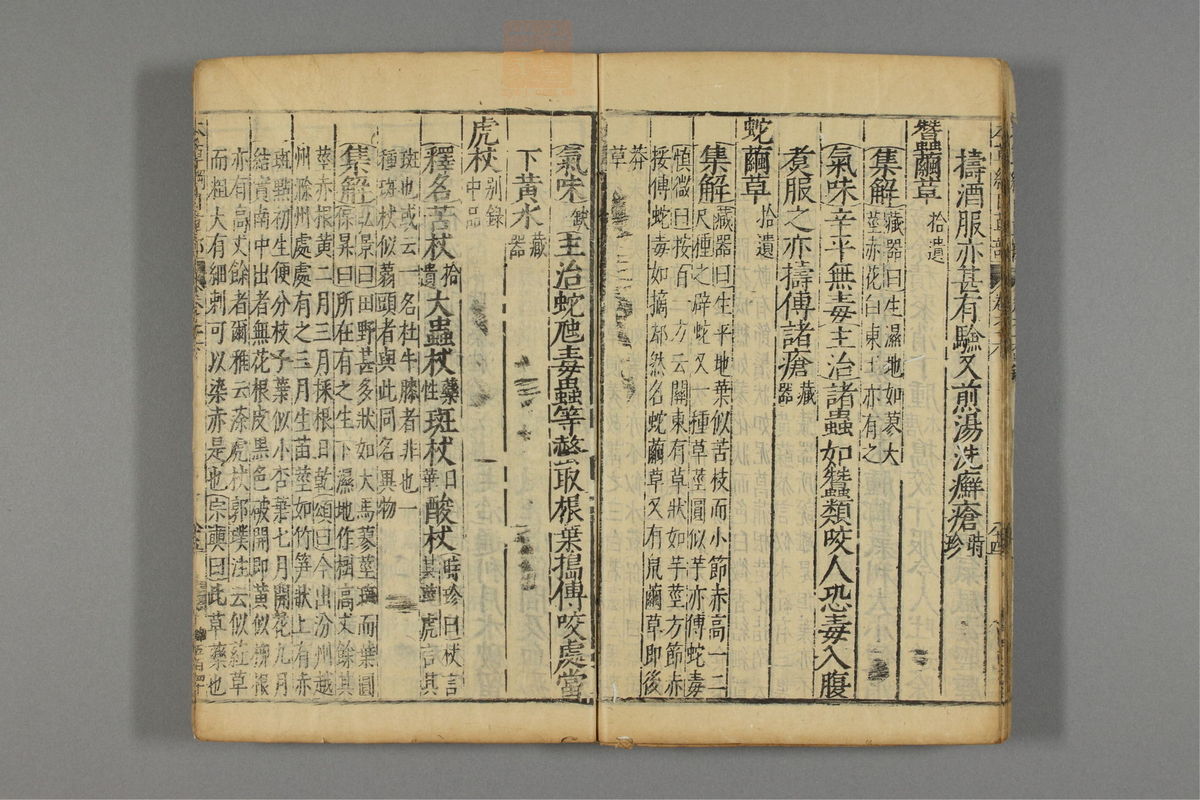 擣酒服亦甚有驗又煎湯洗癬瘡時珍
蠶繭草拾遺
集解藏器曰生濕地如蓼大
莖赤花白東土亦有之
氣味辛平無毒主治諸蟲如蠶類咬人恐毒入腹
煮服之亦擣傅諸瘡藏器
蛇繭草拾遺
集解藏器曰生平地葉似苦枝而小節赤高一二
尺種之辟蛇又一種草莖圓似芋亦傅蛇毒
慎微曰按百一方云關東有草狀如芋莖方節赤
挼傅蛇毒如摘却然名蛇繭草又有鼠繭草即後
莽
草
氣味缺主治蛇虺毒蟲等螫取根葉搗傅咬處當
下黃水藏器
虎杖別錄中品
釋名苦杖拾遺大蟲杖藥性斑杖日華酸杖時珍曰杖言其莖虎言其
斑也或云一名杜牛膝者非也一
種斑杖似蒻頭者與此同名異物
集解弘景曰田野甚多狀如大馬蓼莖斑而葉圓
保昇曰所在有之生下濕地作樹高丈餘其
莖赤根黃二月三月採根日乾頌曰今出汾州越
州滁州處處有之三月生苗莖如竹筍狀上有赤
斑點初生便分枝子葉似小杏葉七月開花九月
結實南中出者無花根皮黑色破開即黃似柳根
亦有高丈餘者爾雅云蒤虎杖郭璞注云似紅草
而粗大有細刺可以染赤是也宗奭曰此草藥也